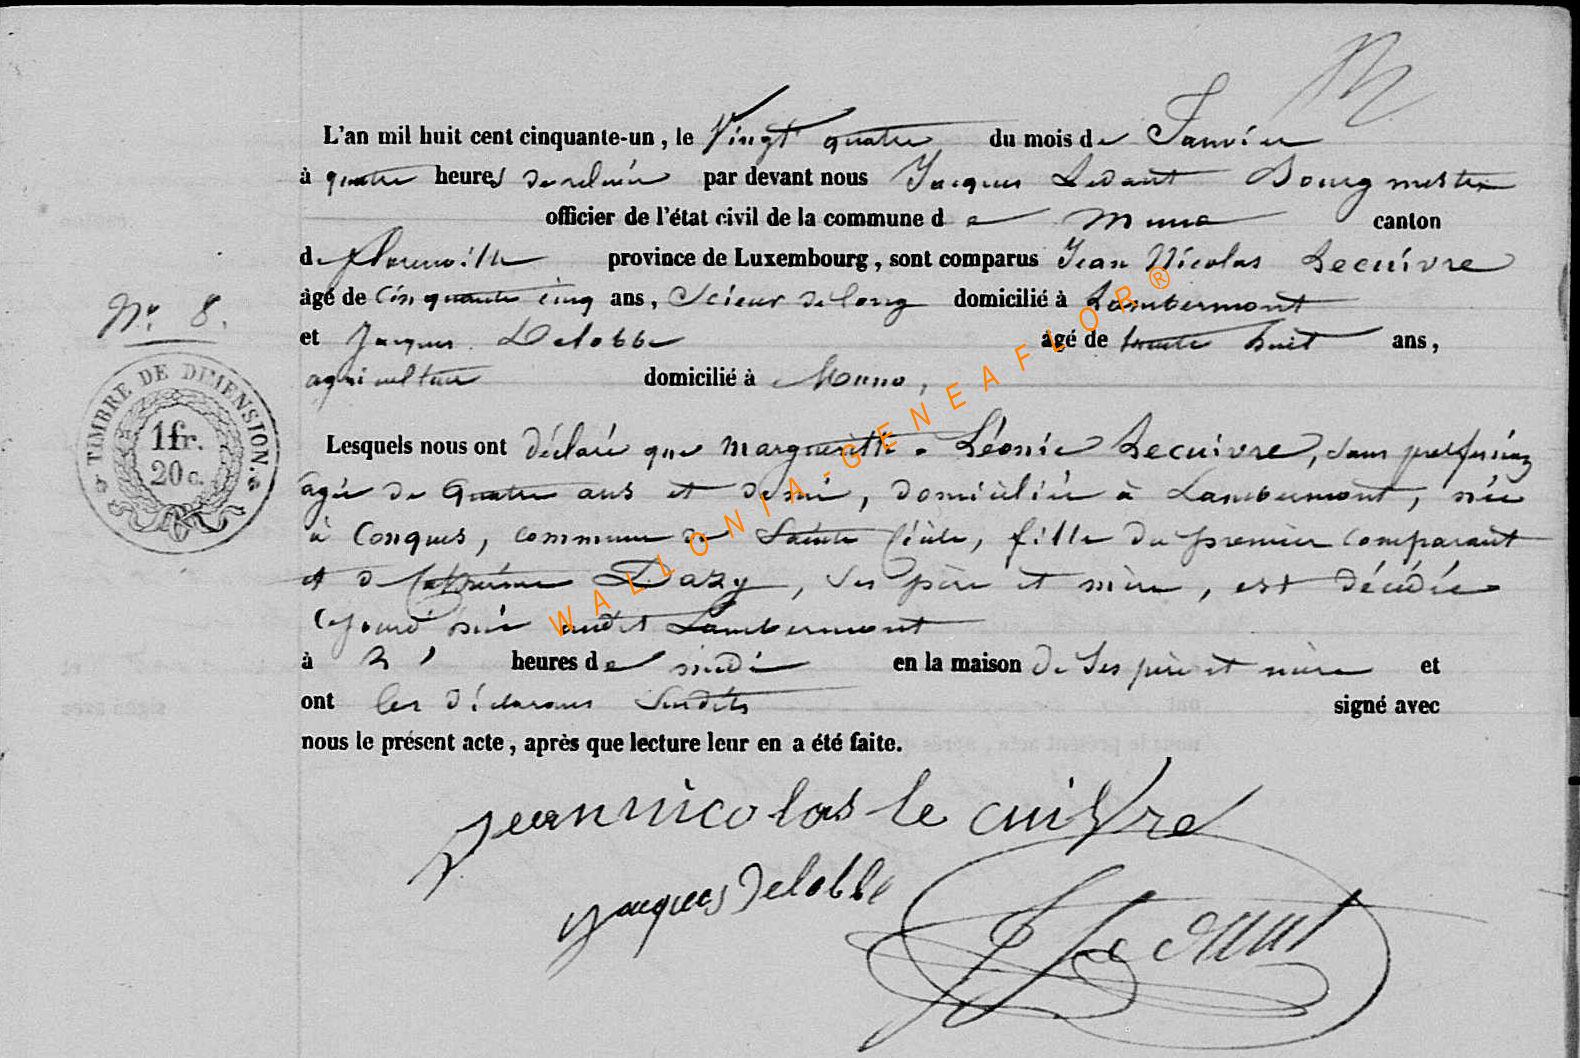 L'an mil huit cent cinquante-un, le Vingt quatre du mois de Janvier
à quatre heures de relevée par devant nous Jacques Ledant Bourgmestre
officier de l'état civil de la commune de Muno canton
de florenville province de Luxembourg, sont comparus Jean Nicolas Lecuivre
âgé de Cinquante cinq ans, Scieur de long domicilié à Lambermont
et Jacques Delobbe agé de trente huit ans,
agriculteur domicilié à Muno,
N° 8.
TIMBRE DE DIMENSION.
1fr.
20c.
Lesquels nous ont déclaré que marguerite - Léonie Lecuivre, sans profession
agée de quatre ans et demi, domiciliée à Lambermont, née
à Conques, commune de Sainte Cécile, fille du premier comparant
et de Dazy, ses père et mère, est décédée
Cejourd'hui audit Lambermont
à heures de midi en la maison de ses père et mère et
ont les déclarans susdits signé avec
nous le présent acte, après que lecture leur en a été faite.
jean nicolas le cuivre
jacques Delobbe
J Ledant
WALLONIA-GENEAFLOR®